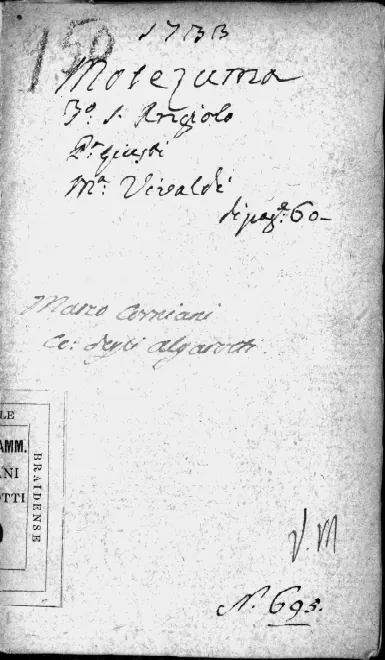 150
1733
Motezuma
T.º S. Angiolo
P.ª Giusti
M.ª Vivaldi
di pag.e 60-
Marco Corniani
Co: degli Algarotti
LE
AMM.
ANI
OTTI
BRAIDENSE
VM
N.º 695.